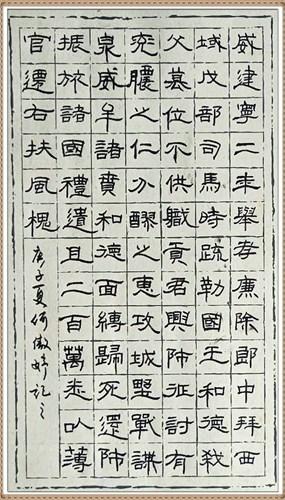 威建寧二年舉孝廉除郎中拜西
域戊部司馬時疏勒國王和德殺
父篡位不供職貢君興師征討有
兗膿之仁分醪之惠攻城野戰謀
泉威牟諸賁和德面縛歸死還師
振旅諸國禮遺且二百萬悉以薄
官遷右扶風槐
庚子夏何傲婷記之